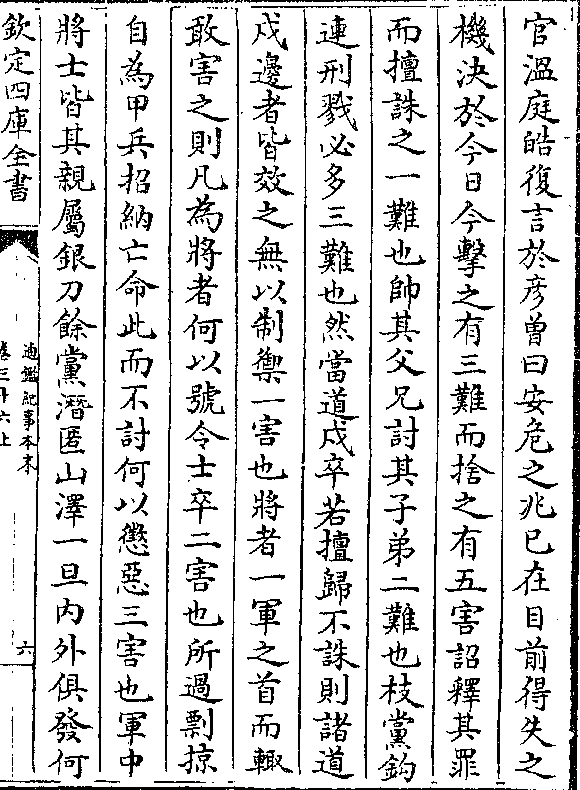 官溫庭皓復言於彥曾曰安危之兆已在目前得失之
機決於今日今擊之有三難而捨之有五害詔釋其罪
而擅誅之一難也帥其父兄討其子弟二難也枝黨鈎
連刑戮必多三難也然當道戍卒若擅歸不誅則諸道
戍邊者皆效之無以制禦一害也將者一軍之首而輙
敢害之則凡為將者何以號令士卒二害也所過剽掠
自為甲兵招納亡命此而不討何以懲惡三害也軍中
將士皆其親屬銀刀餘黨潛匿山澤一旦內外俱發何
欽定四庫全書
通鑑紀事本末
卷三十六上
六